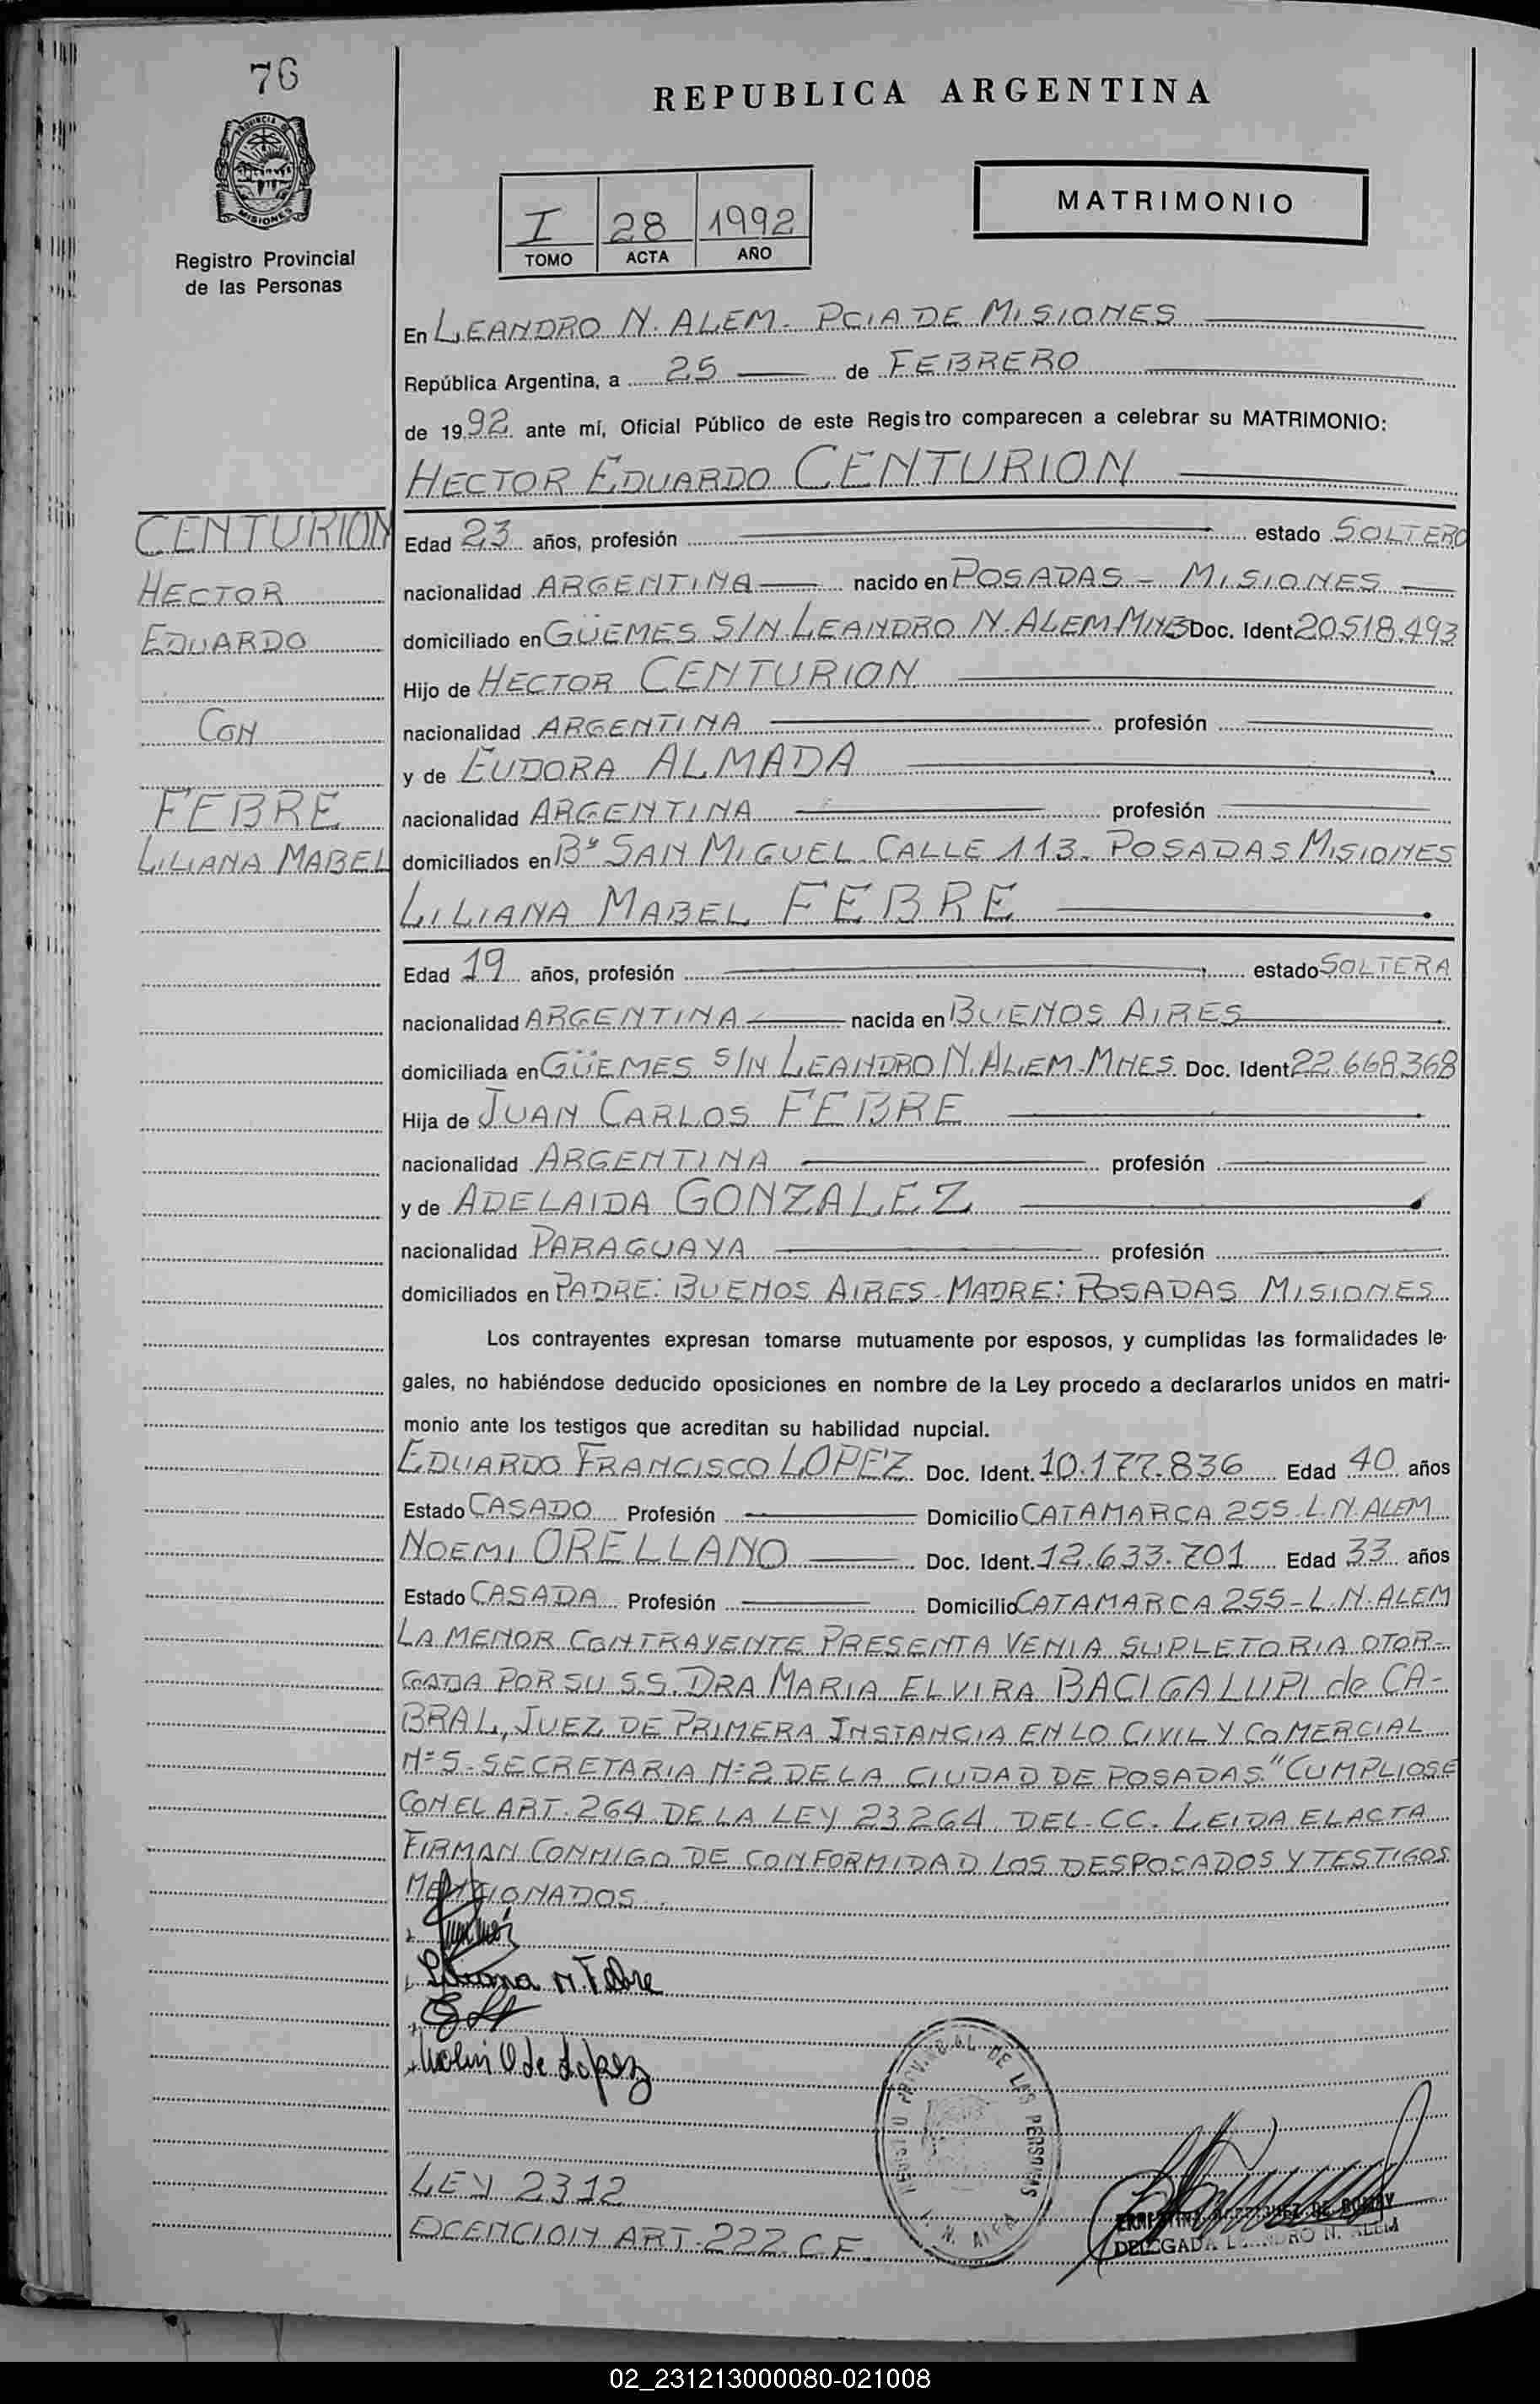 76
REPUBLICA ARGENTINA
PROVINCIA DE
MISIONES
Registro Provincial
de las Personas
I 28 1992
TOMO ACTA AÑO
MATRIMONIO
En LEANDRO N. ALEM - PCIA DE MISIONES
República Argentina, a 25 de FEBRERO
de 1992 ante mí, Oficial Público de este Registro comparecen a celebrar su MATRIMONIO:
HECTOR EDUARDO CENTURION
CENTURION
HECTOR
EDUARDO
CON
FEBRE
LILIANA MABEL
Edad 23 años, profesión estado SOLTERO
nacionalidad ARGENTINA nacido en POSADAS - MISIONES
domiciliado en GÜEMES S/N LEANDRO N. ALEM-MNES Doc. Ident. 20518.493
Hijo de HECTOR CENTURION
nacionalidad ARGENTINA profesión
y de EUDORA ALMADA
nacionalidad ARGENTINA profesión
domiciliados en Bº SAN MIGUEL CALLE 113 - POSADAS MISIONES
LILIANA MABEL FEBRE
Edad 19 años, profesión estado SOLTERA
nacionalidad ARGENTINA nacida en BUENOS AIRES
domiciliada en GÜEMES S/N LEANDRO N. ALEM-MNES Doc. Ident. 22.668.368
Hija de JUAN CARLOS FEBRE
nacionalidad ARGENTINA profesión
y de ADELAIDA GONZALEZ
nacionalidad PARAGUAYA profesión
domiciliados en PADRE: BUENOS AIRES - MADRE: POSADAS MISIONES
Los contrayentes expresan tomarse mutuamente por esposos, y cumplidas las formalidades le-
gales, no habiéndose deducido oposiciones en nombre de la Ley procedo a declararlos unidos en matri-
monio ante los testigos que acreditan su habilidad nupcial.
EDUARDO FRANCISCO LOPEZ Doc. Ident. 10.177.836 Edad 40 años
Estado CASADO Profesión Domicilio CATAMARCA 255 - L.N. ALEM
NOEMI ORELLANO Doc. Ident. 12.633.701 Edad 33 años
Estado CASADA Profesión Domicilio CATAMARCA 255 - L.N. ALEM
LA MENOR CONTRAYENTE PRESENTA VENIA SUPLETORIA OTOR-
GADA POR SU S.S. DRA MARIA ELVIRA BACIGALUPI de CA-
BRAL, JUEZ DE PRIMERA INSTANCIA EN LO CIVIL Y COMERCIAL
Nº 5 - SECRETARIA Nº 2 DE LA CIUDAD DE POSADAS." CUMPLIOSE
CON EL ART. 264 DE LA LEY 23264 DEL CC. LEIDA EL ACTA
FIRMAN CONMIGO DE CONFORMIDAD LOS DESPOSADOS Y TESTIGOS
MENCIONADOS.
Liliana M. Febre
Noemi O de Lopez
REGISTRO PROVINCIAL DE LAS PERSONAS
L. N. ALEM
LEY 2312
OCENCION ART. 222 C.F.
DELEGADA LEANDRO N. ALEM
02_231213000080-021008